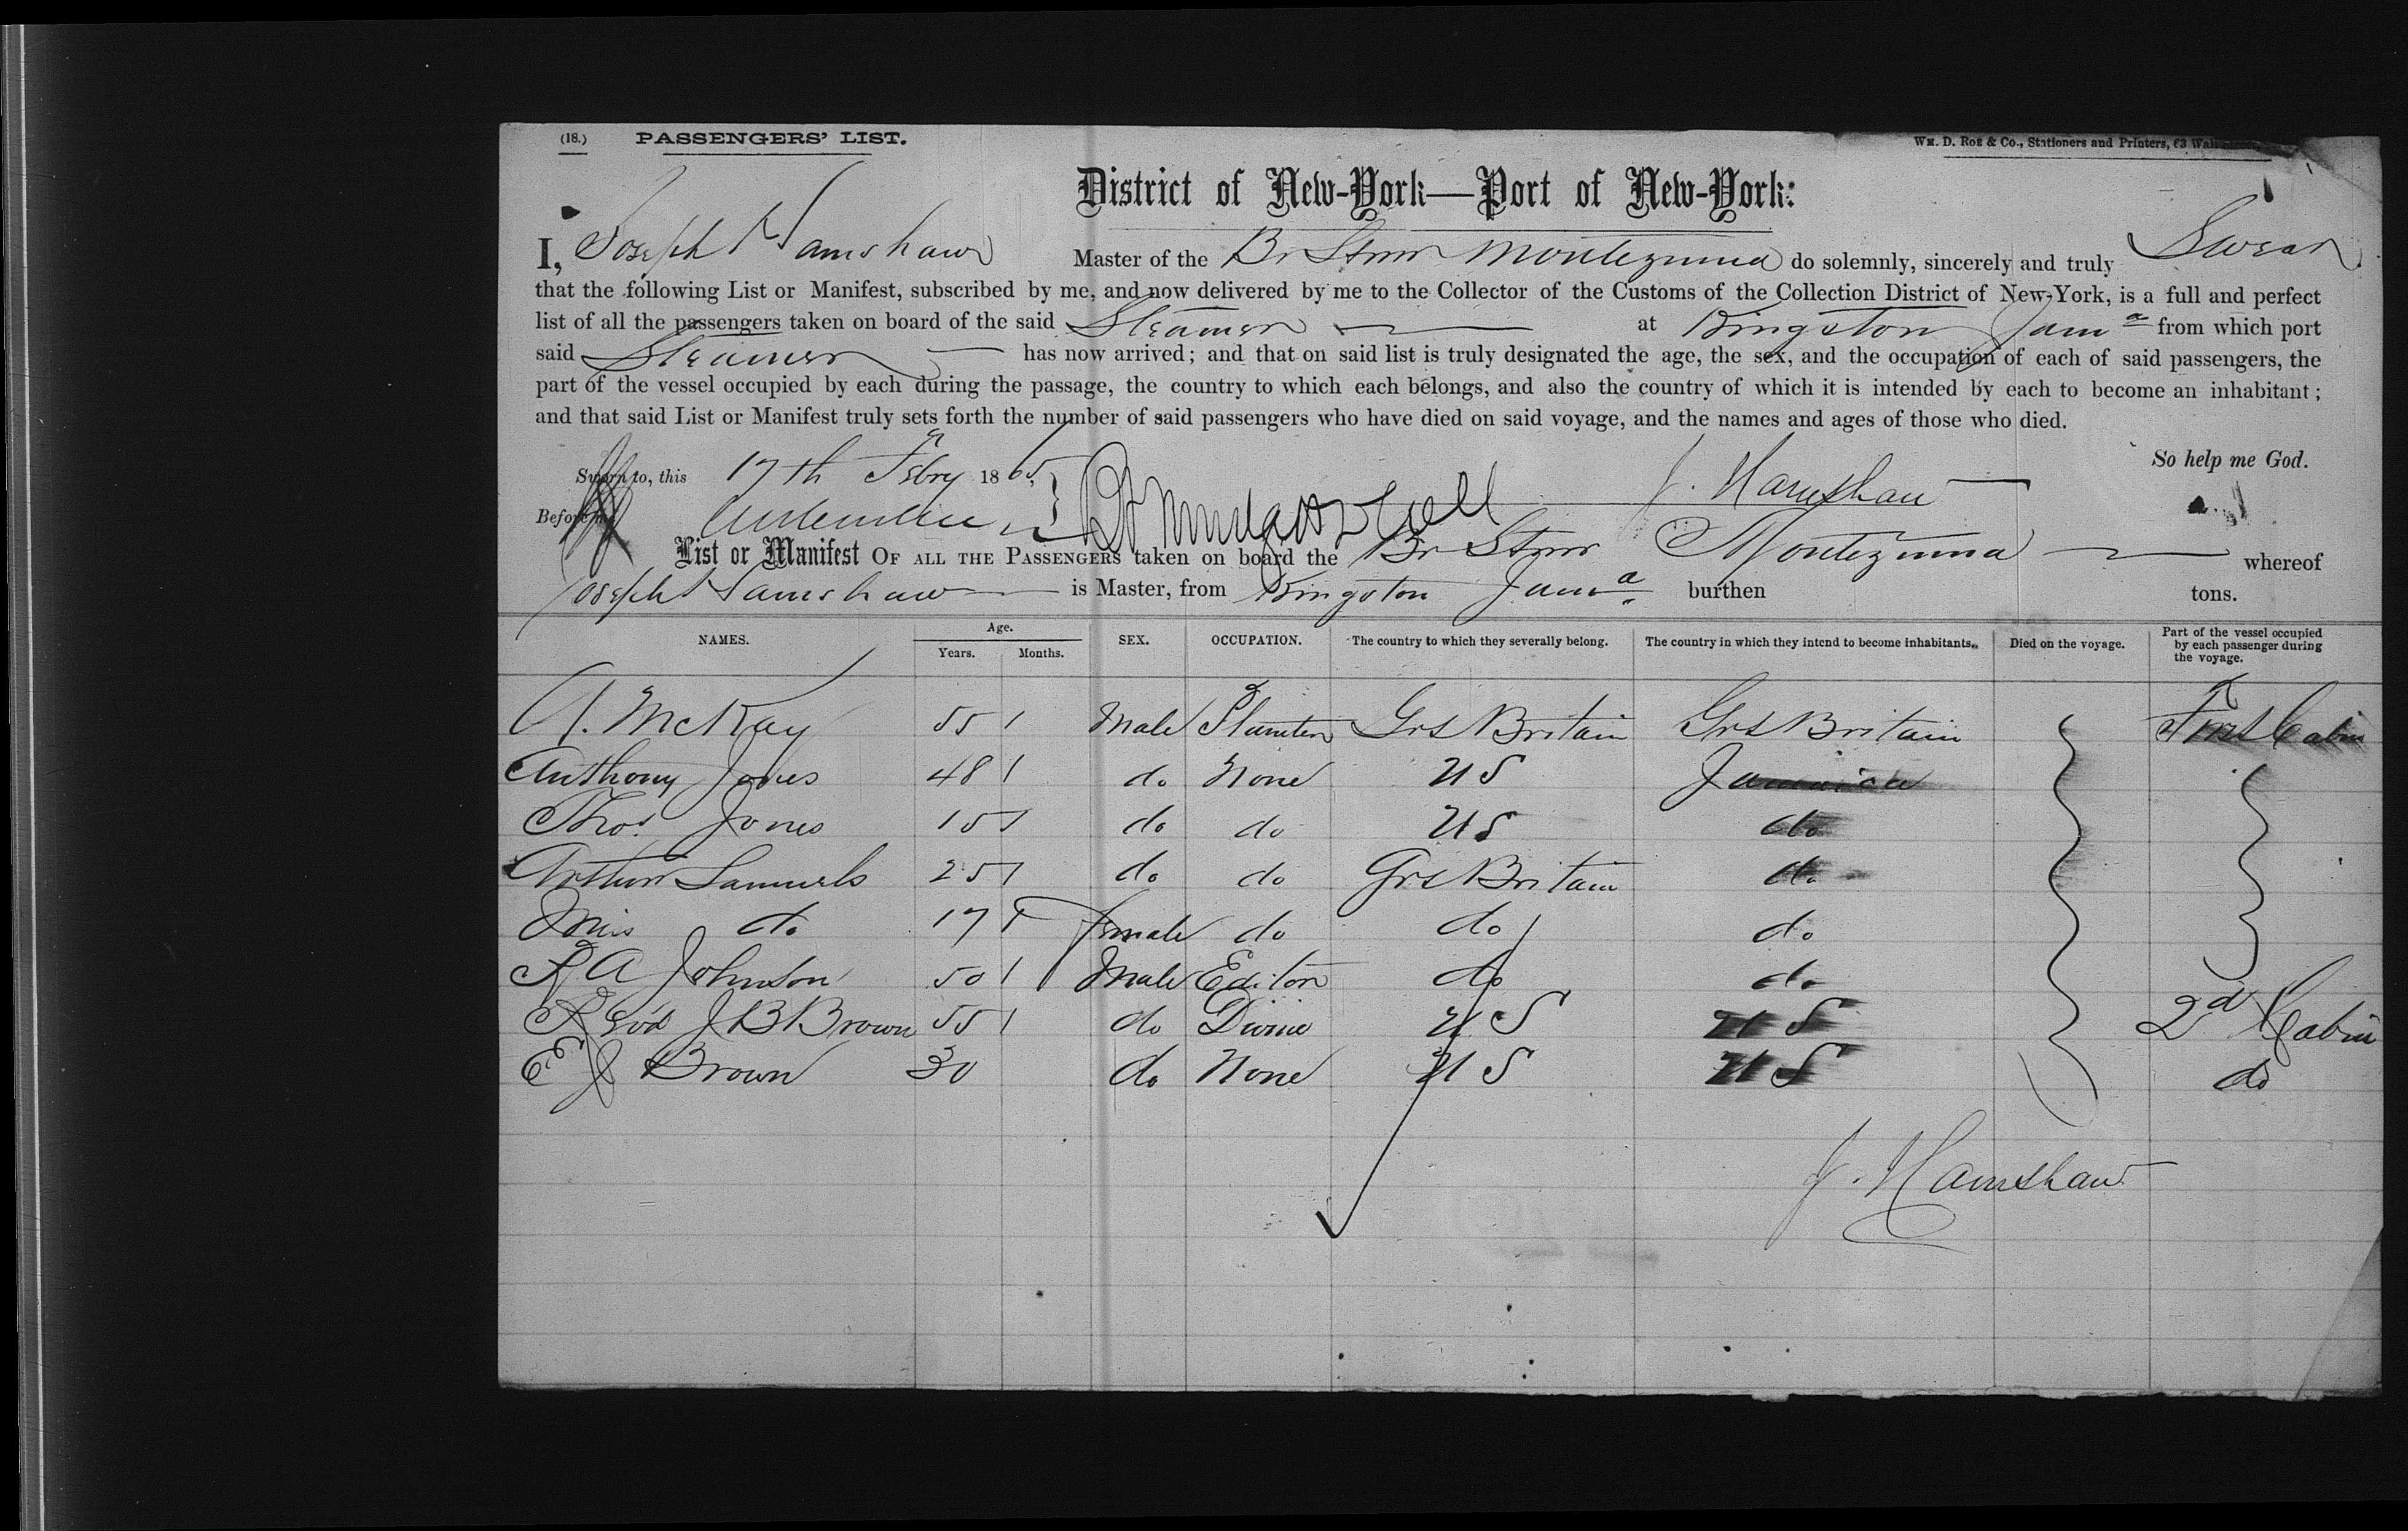 (18.) PASSENGERS' LIST.
Wm. D. Roe & Co., Stationers and Printers, 63 Wall
District of New-York—Port of New-York:
I, Joseph Hamshaw Master of the Br Stmr Montezuma do solemnly, sincerely and truly Swear
that the following List or Manifest, subscribed by me, and now delivered by me to the Collector of the Customs of the Collection District of New-York, is a full and perfect
list of all the passengers taken on board of the said Steamer at Kingston Jama from which port
said Steamer has now arrived; and that on said list is truly designated the age, the sex, and the occupation of each of said passengers, the
part of the vessel occupied by each during the passage, the country to which each belongs, and also the country of which it is intended by each to become an inhabitant;
and that said List or Manifest truly sets forth the number of said passengers who have died on said voyage, and the names and ages of those who died.
So help me God.
Sworn to, this 17th Febry 1865 J. Hamshaw
Before me
List or Manifest OF ALL THE PASSENGERS taken on board the Br Stmr Montezuma whereof
Joseph Hamshaw is Master, from Kingston Jama burthen tons.
NAMES. Age. Years. Months. SEX. OCCUPATION. The country to which they severally belong. The country in which they intend to become inhabitants. Died on the voyage. Part of the vessel occupied by each passenger during the voyage.
A. McKay 55 Male Planter Grt Britain Grt Britain First Cabin
Anthony Jones 48 do None US Jamaica
Thos. Jones 15 do do US do
Arthur Samuels 25 do do Grt Britain do
Miss do 17 female do do do
R A Johnson 50 Male Editor do do
Revd J B Brown 55 do Divine U S U S 2d Cabin
E J Brown 30 do None U S U S do
J. Hamshaw